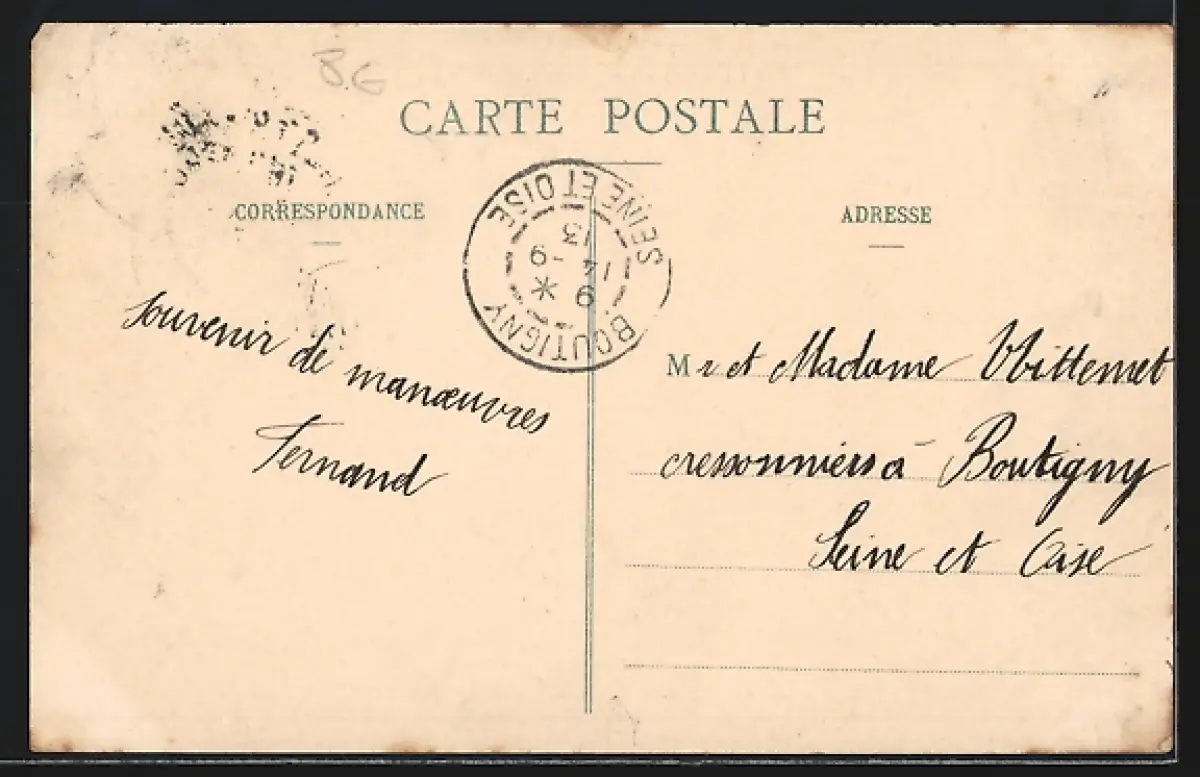 CARTE POSTALE
CORRESPONDANCE
ADRESSE
BOUTIGNY
SEINE ET OISE
9 *
14 -9
13
souvenir de manœuvres
Fernand
Mr et Madame Vbittemet
cressonniers à Boutigny
Seine et Oise